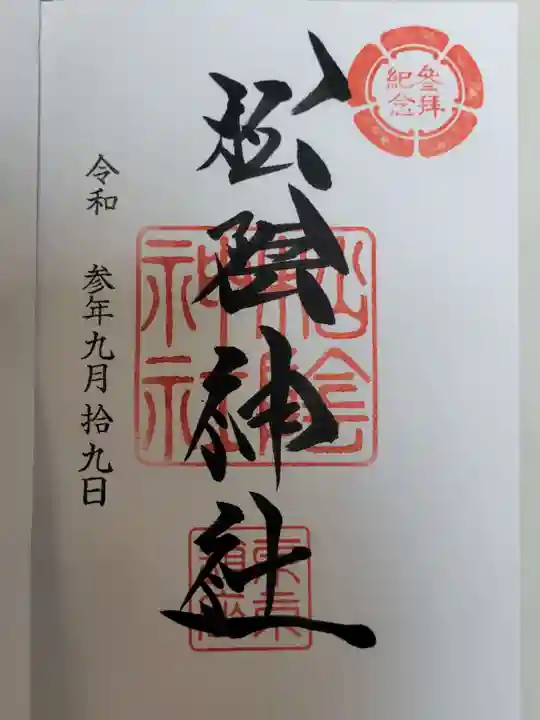 參拜
紀念
松陰神社
松陰
神社
令和 参年九月拾九日